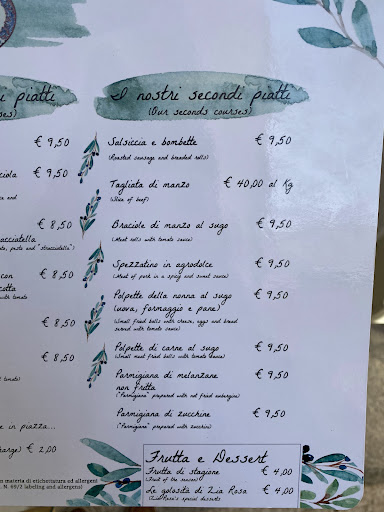 i piatti
ses)
€ 9,50
ciola € 9,50
ce and
€ 8,50
racciatella
ato, pesto and "stracciatella")
con € 8,50
cotta
with tomato
€ 8,50
€ 8,50
tomato)
e in piazza...
harge) € 2,00
n materia di etichettatura ed allergeni
N. 69/2 labeling and allergens)
I nostri secondi piatti
(Our seconds courses)
Salsiccia e bombette € 9,50
(Roasted sausage and breaded rolls)
Tagliata di manzo € 40,00 al Kg
(Slice of beef)
Braciole di manzo al sugo € 9,50
(Meat rolls with tomato sauce)
Spezzatino in agrodolce € 9,50
(Meat of pork in a spicy and sweet sauce)
Polpette della nonna al sugo € 9,50
(uova, formaggio e pane)
(Small fried balls with cheese, eggs and bread
served with tomato sauce)
Polpette di carne al sugo € 9,50
(Small meat fried balls with tomato sauce)
Parmigiana di melanzane € 9,50
non fritta
("Parmigiana" prepared with not fried aubergine)
Parmigiana di zucchine € 9,50
("Parmigiana" prepared with zucchini)
Frutta e Dessert
Frutta di stagione € 4,00
(Fruit of the season)
Le golosità di Zia Rosa € 4,00
(Zia Rosa's special desserts